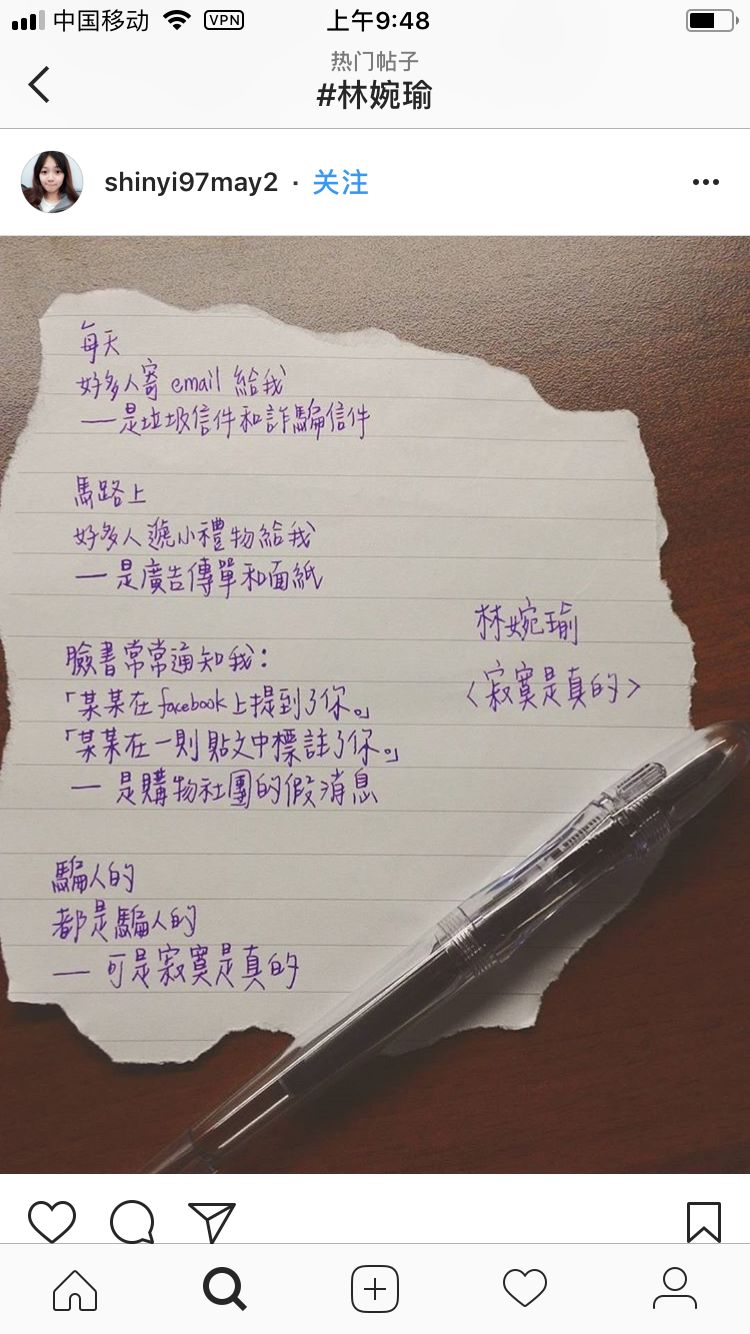 中国移动 VPN 上午9:48
热门帖子
#林婉瑜
shinyi97may2 · 关注
每天
好多人寄 email 給我
——是垃圾信件和詐騙信件
馬路上
好多人遞小禮物給我
——是廣告傳單和面紙
臉書常常通知我：
「某某在 facebook 上提到了你。」
「某某在一則貼文中標註了你。」
——是購物社團的假消息
騙人的
都是騙人的
——可是寂寞是真的
林婉瑜
〈寂寞是真的〉